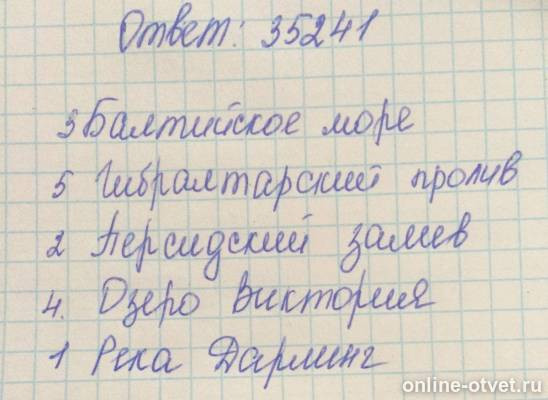 Ответ: 35241
3 Балтийское море
5 Гибралтарский пролив
2 Персидский залив
4. Озеро Виктория
1 Река Дарлинг
online-otvet.ru